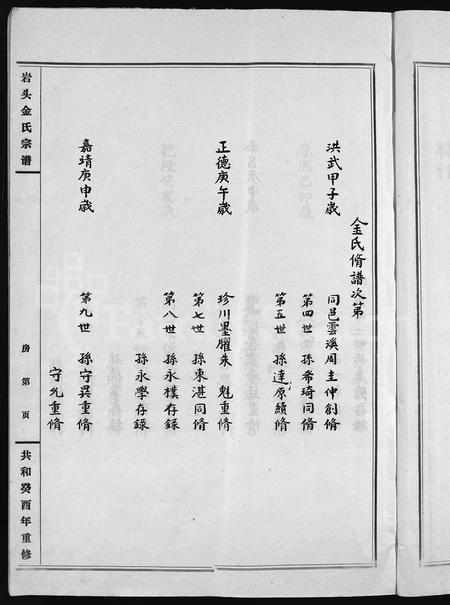 金氏脩譜次第
洪武甲子歲
同邑雲溪周圭仲創脩
第四世孫希琦同脩
第五世孫達原續脩
正德庚午歲
珍川墨臞朱魁重脩
第七世孫東湛同脩
第八世孫永樸存錄
孫永學存錄
嘉靖庚申歲
第九世孫守巽重脩
守允重脩
岩头金氏宗谱
房第頁
共和癸酉年重修